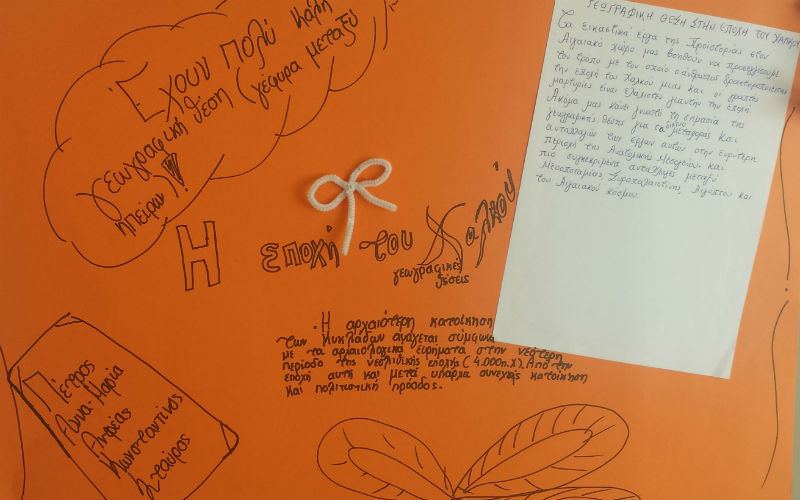 Έχουν πολύ καλή
γεωγραφική θέση (γέφυρα μεταξύ
ηπείρων)!
Η εποχή του Χαλκού
γεωγραφικές
θέσεις
Η αρχαιότερη κατοίκηση
των Κυκλάδων ανάγεται σύμφωνα
με τα αρχαιολογικά ευρήματα στην νεότερη
περίοδο της νεολιθικής εποχής (4.000π.Χ). Από την
εποχή αυτή και μετά υπάρχει συνεχής κατοίκηση
και πολιτιστική πρόοδος.
Πέτρος
Άννα-Μαρία
Ανδρέας
Κωνσταντίνος
Σταύρος
ΓΕΩΓΡΑΦΙΚΗ ΘΕΣΗ ΣΤΗΝ ΕΠΟΧΗ ΤΟΥ ΧΑΛΚΟΥ
Τα εικαστικά έργα της Προϊστορίας στον
Αιγαιακό χώρο μας βοηθούν να προσεγγίσουμε
τον τρόπο με τον οποίο ο άνθρωπος δραστηριοποιείται
την εποχή του Χαλκού μιας και οι γραπτές
μαρτυρίες είναι ελάχιστες για αυτήν την εποχή.
Ακόμα μας κάνει γνωστό τη σημασία της
γεωγραφικής θέσης για το δίκτυο μεταφοράς και
ανταλλαγών των έργων αυτών στην ευρύτερη
περιοχή της Ανατολικής Μεσογείου. Και
πιο συγκεκριμένα ανταλλαγές μεταξύ
Μεσοποταμίας, Συροπαλαιστίνης, Αιγύπτου και
του Αιγαιακού κόσμου.